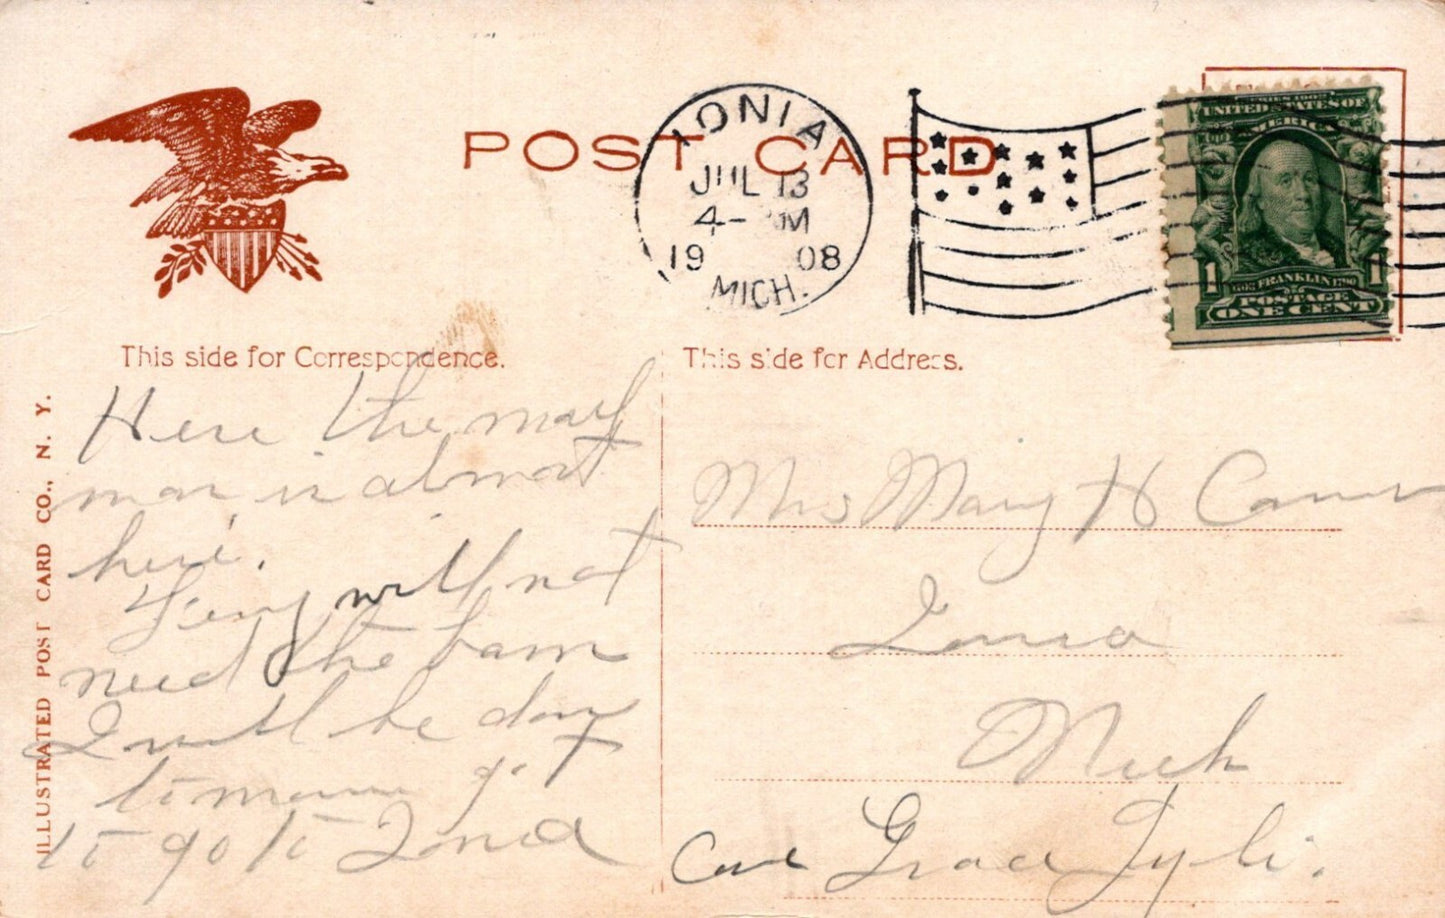 POST CARD
IONIA
JUL 13
4- M
1908
MICH.
SERIES 1902
UNITED STATES OF
AMERICA
1 FRANKLIN 1790 1
POSTAGE
ONE CENT
This side for Correspondence.
This side for Address.
ILLUSTRATED POST CARD CO., N. Y.
Here the
man is almost
here.
will not
need the barn
I will be down
to
to go to Ionia
Mrs Mary H
Ionia
Mich
Care Grace